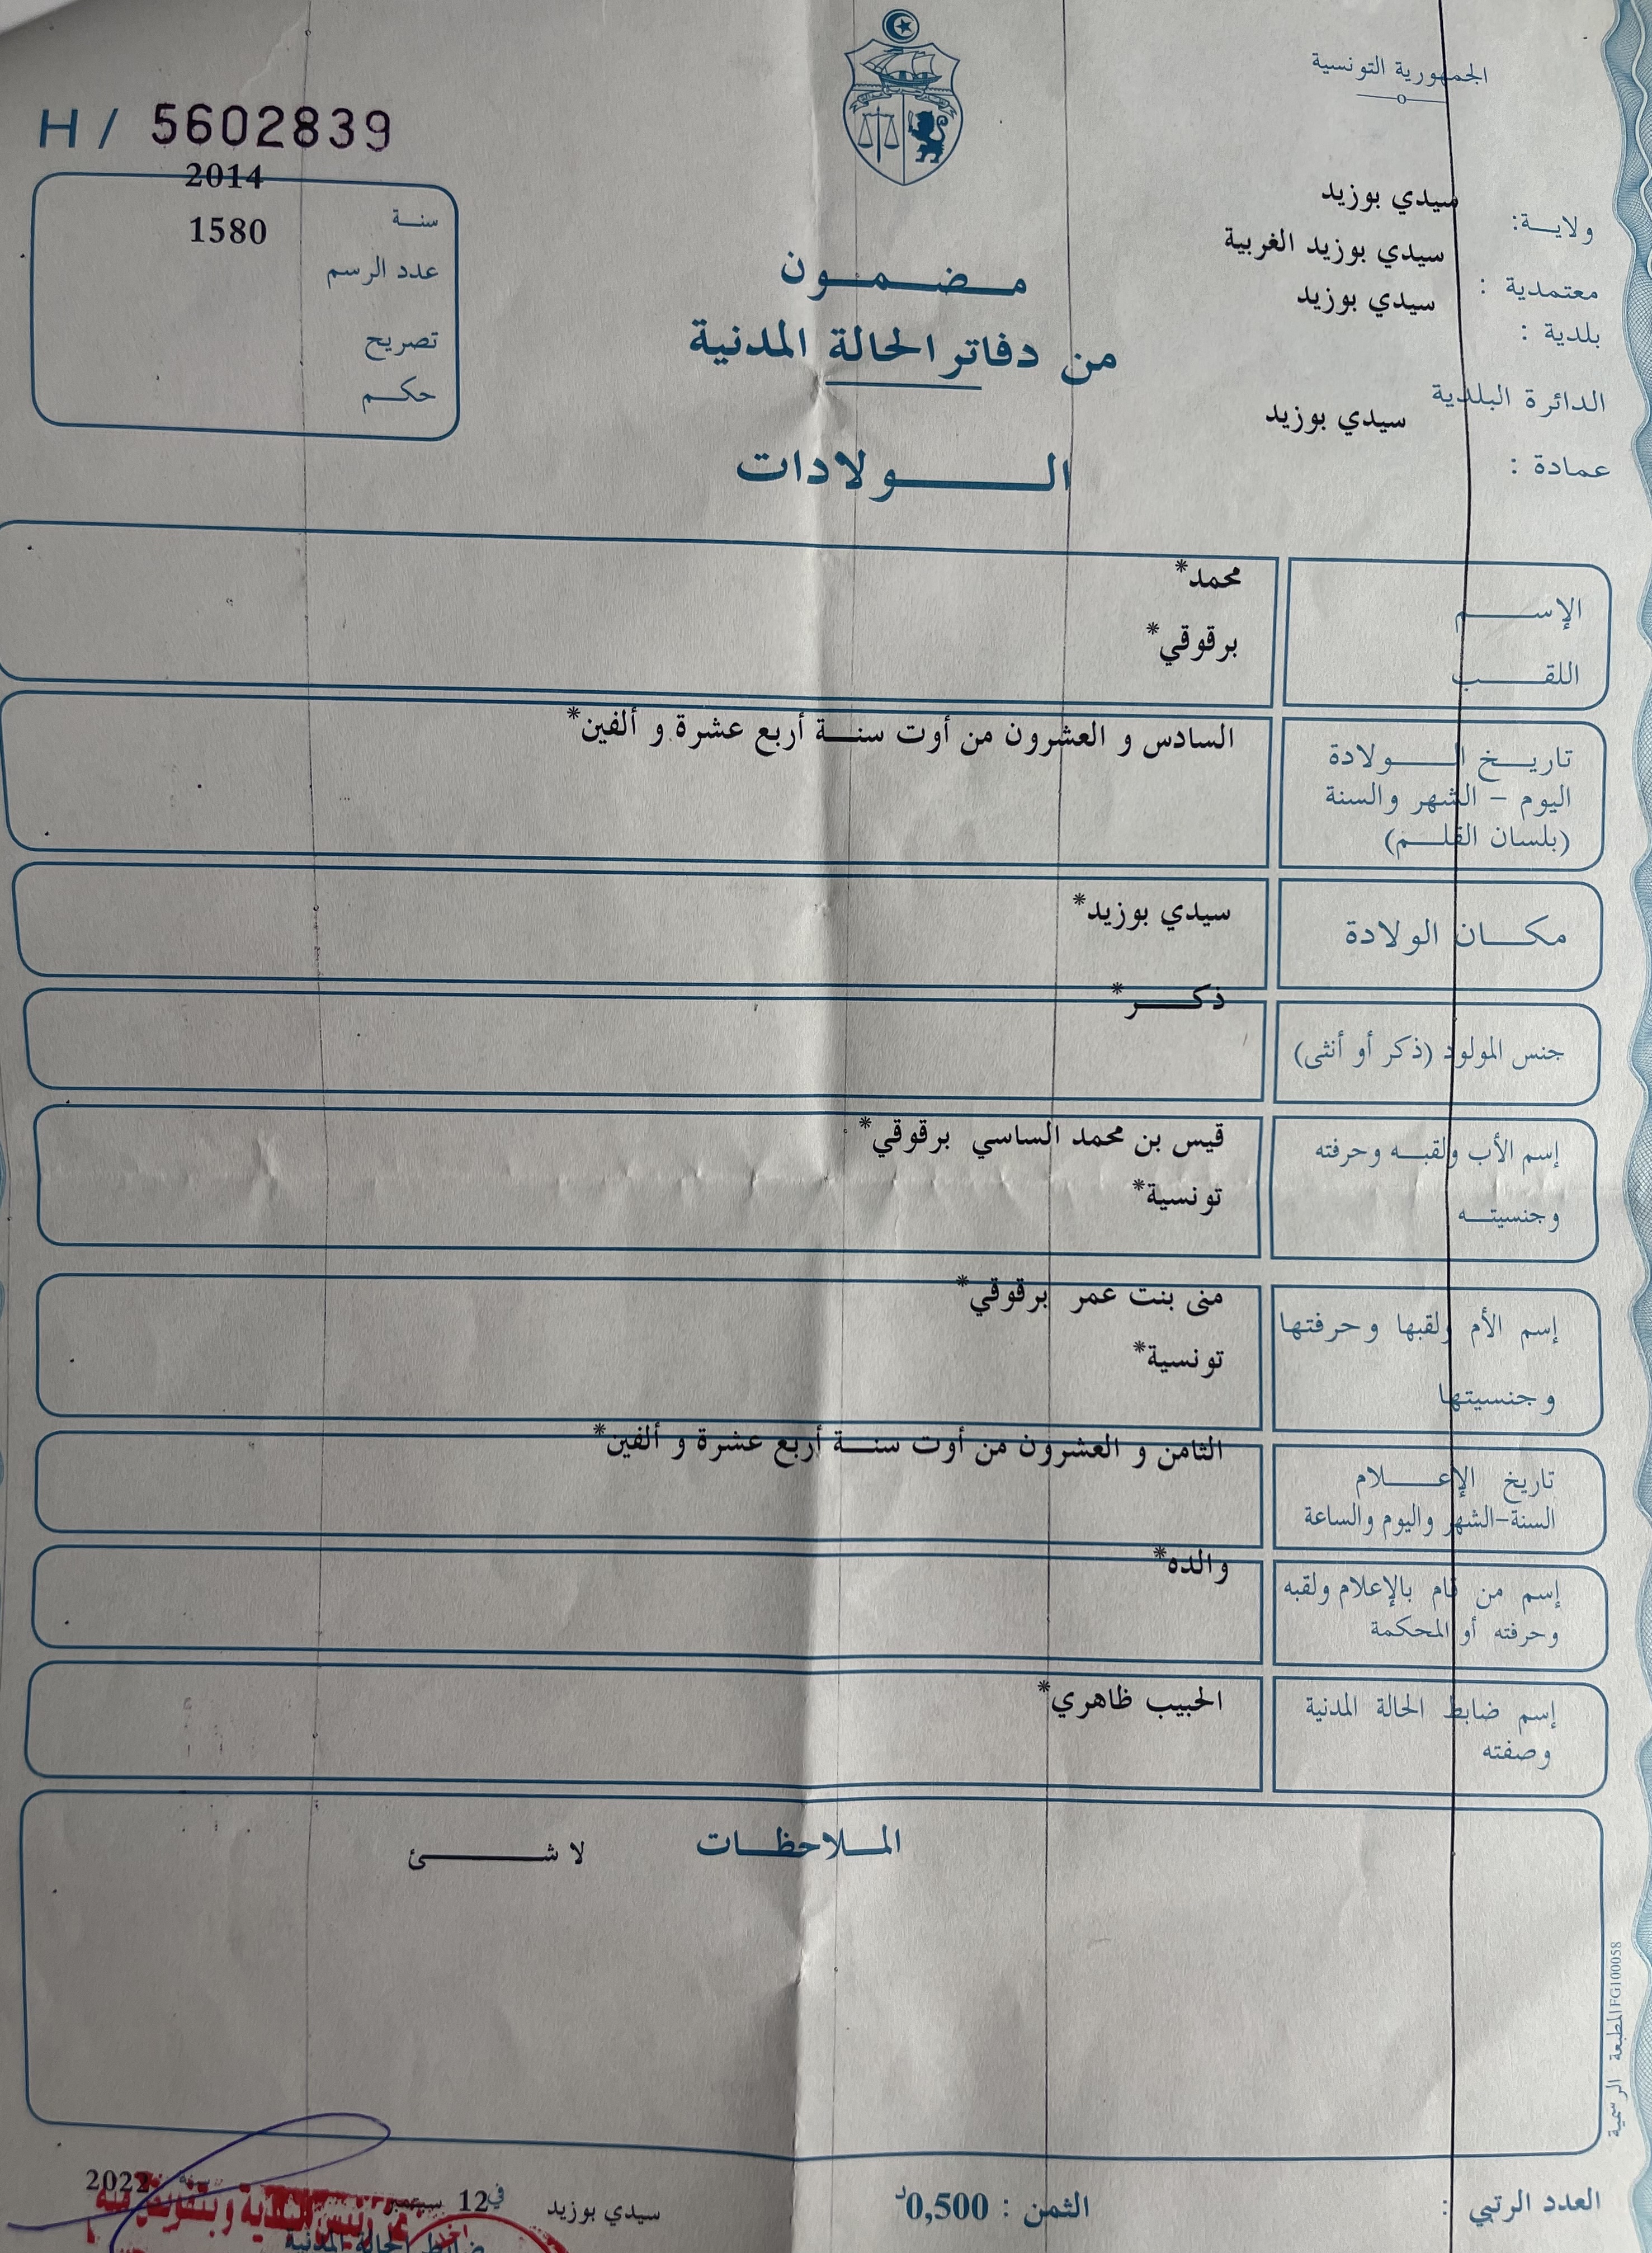 الجمهورية التونسية
H / 5602839
2014
سنة
1580
عدد الرسم
تصريح
حكم
سيدي بوزيد
ولاية:
سيدي بوزيد الغربية
معتمدية :
سيدي بوزيد
بلدية :
الدائرة البلدية
سيدي بوزيد
عمادة :
مضمون
من دفاتر الحالة المدنية
الولادات
الإسم
محمد*
اللقب
برقوقي*
تاريخ الولادة
اليوم - الشهر والسنة
(بلسان القلم)
السادس و العشرون من أوت سنة أربع عشرة و ألفين*
مكان الولادة
سيدي بوزيد*
جنس المولود (ذكر أو أنثى)
ذكر*
إسم الأب ولقبه وحرفته
وجنسيته
قيس بن محمد الساسي برقوقي*
تونسية*
إسم الأم ولقبها وحرفتها
وجنسيتها
منى بنت عمر برقوقي*
تونسية*
تاريخ الإعلام
السنة-الشهر واليوم والساعة
الثامن و العشرون من أوت سنة أربع عشرة و ألفين*
إسم من قام بالإعلام ولقبه
وحرفته أو المحكمة
والده*
إسم ضابط الحالة المدنية
وصفته
الحبيب ظاهري*
الملاحظات
لا شئ
المطبعة الرسمية FG100058
العدد الرتبي :
الثمن : 0,500د
سيدي بوزيد في 12 سبتمبر سنة 2022
عن رئيس البلدية وبتفويض منه
ضابط الحالة المدنية